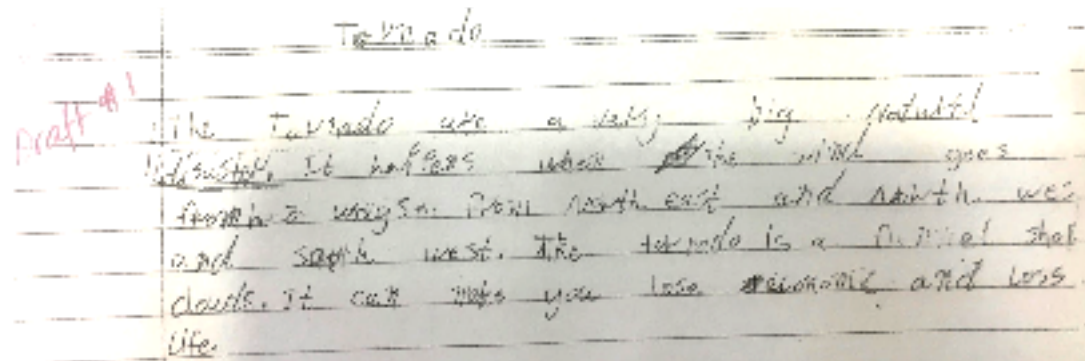 Tornado
Draft #1
The Tornado are a very big natural
disaster. It happens when the wind goes
from 2 ways. From north east and north wes
and south west. The tornado is a funnel shap
clouds. It can make you lose economic and loss
life.